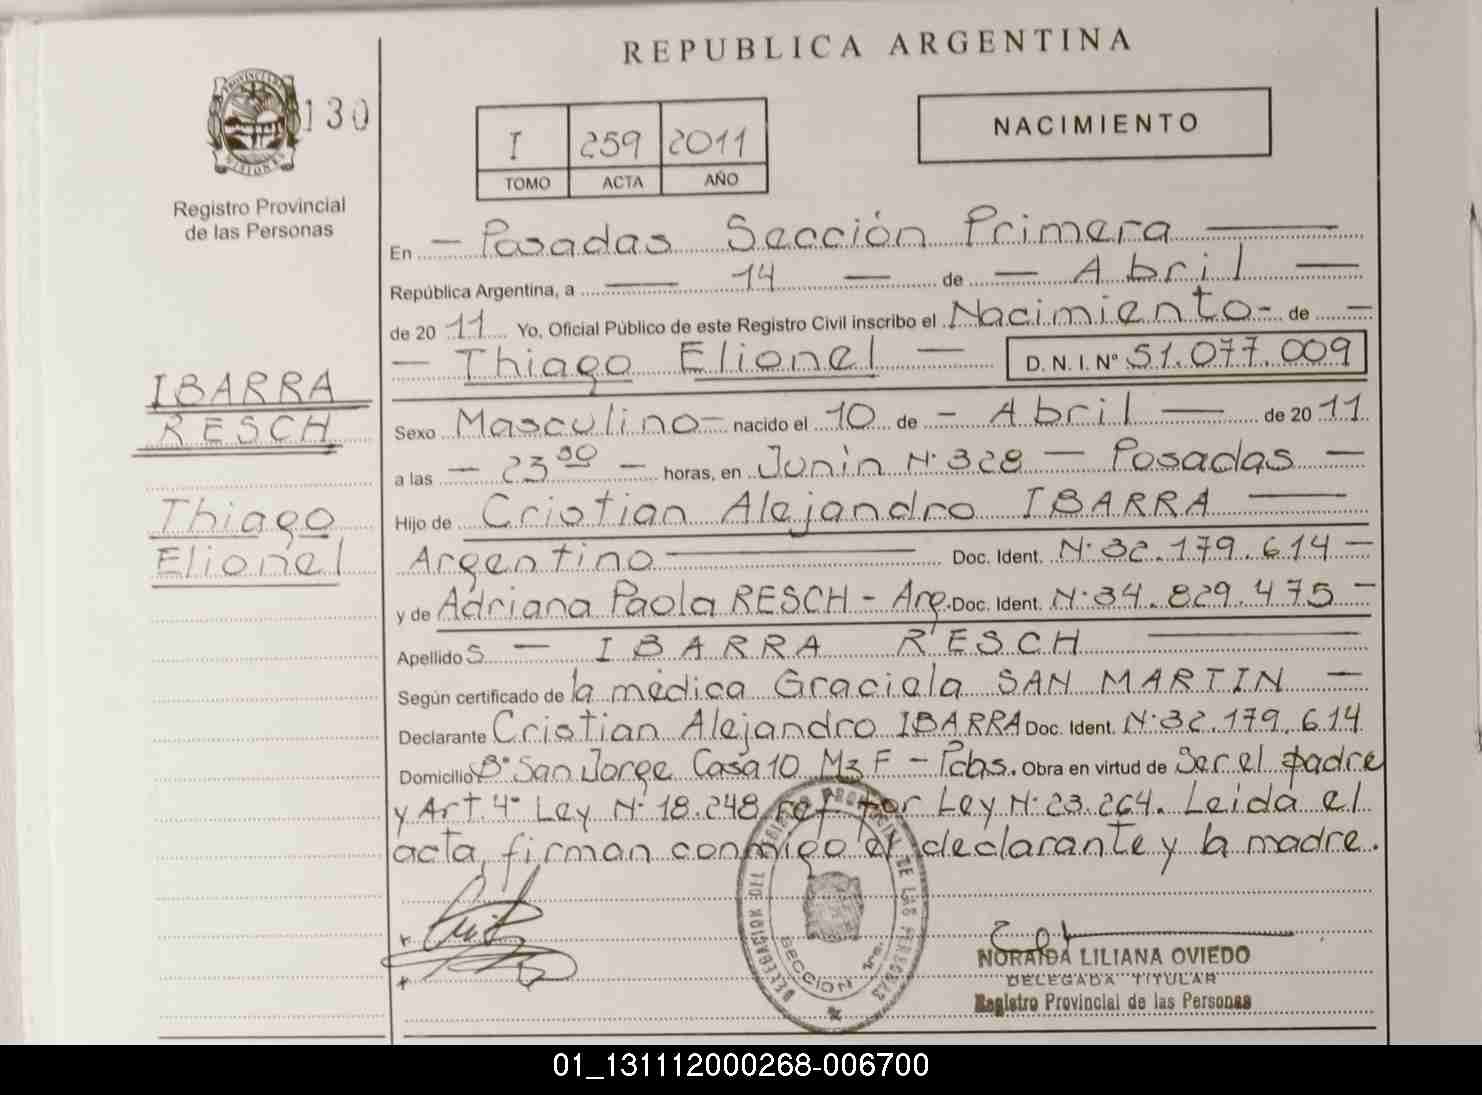 REPUBLICA ARGENTINA
PROVINCIA DE MISIONES
130
Registro Provincial
de las Personas
I 259 2011
TOMO ACTA AÑO
NACIMIENTO
En - Posadas Sección Primera -
República Argentina, a - 14 - de - Abril -
de 2011 Yo, Oficial Público de este Registro Civil inscribo el Nacimiento - de -
- Thiago Elionel - D. N. I. N° 51.077.009
IBARRA
RESCH
Thiago
Elionel
Sexo Masculino - nacido el 10 de - Abril - de 2011
a las - 23 00 - horas, en Junin N° 328 - Posadas -
Hijo de Cristian Alejandro IBARRA -
Argentino - Doc. Ident. N° 32.179.614 -
y de Adriana Paola RESCH - Arg. Doc. Ident. N° 34.829.475 -
Apellidos - IBARRA RESCH -
Según certificado de la médica Graciela SAN MARTIN -
Declarante Cristian Alejandro IBARRA Doc. Ident. N° 32.179.614
Domicilio B° San Jorge Casa 10 Mz F - Pdas. Obra en virtud de Ser el padre
y Art. 4° Ley N° 18.248 ref por Ley N° 23.264. Leida el
acta, firman conmigo el declarante y la madre.
DELEGACION DEL REGISTRO PROVINCIAL DE LAS PERSONAS
SECCION 1ra.
NORAIDA LILIANA OVIEDO
DELEGADA TITULAR
Registro Provincial de las Personas
01_131112000268-006700